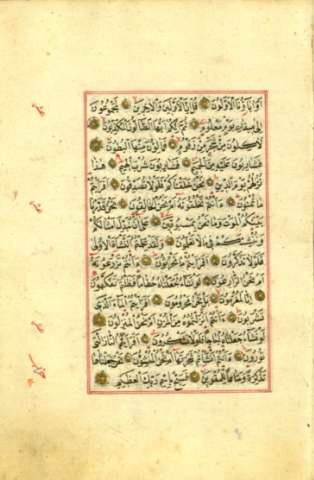 اَوَاٰبَاؤُنَا الْاَوَّلُونَ قُلْ اِنَّ الْاَوَّلِينَ وَالْاٰخِرِينَ لَمَجْمُوعُونَ
اِلٰى مِيقَاتِ يَوْمٍ مَعْلُومٍ ثُمَّ اِنَّكُمْ اَيُّهَا الضَّالُّونَ الْمُكَذِّبُونَ
لَاٰكِلُونَ مِنْ شَجَرٍ مِنْ زَقُّومٍ فَمَالِؤُنَ مِنْهَا الْبُطُونَ
فَشَارِبُونَ عَلَيْهِ مِنَ الْحَمِيمِ فَشَارِبُونَ شُرْبَ الْهِيمِ هٰذَا
نُزُلُهُمْ يَوْمَ الدِّينِ نَحْنُ خَلَقْنَاكُمْ فَلَوْلَا تُصَدِّقُونَ اَفَرَاَيْتُمْ
مَا تُمْنُونَ ءَاَنْتُمْ تَخْلُقُونَهُ اَمْ نَحْنُ الْخَالِقُونَ نَحْنُ قَدَّرْنَا
بَيْنَكُمُ الْمَوْتَ وَمَا نَحْنُ بِمَسْبُوقِينَ عَلٰى اَنْ نُبَدِّلَ اَمْثَالَكُمْ
وَنُنْشِئَكُمْ فِي مَا لَا تَعْلَمُونَ وَلَقَدْ عَلِمْتُمُ النَّشْاَةَ الْاُولٰى
فَلَوْلَا تَذَكَّرُونَ اَفَرَاَيْتُمْ مَا تَحْرُثُونَ ءَاَنْتُمْ تَزْرَعُونَهُ
اَمْ نَحْنُ الزَّارِعُونَ لَوْ نَشَاءُ لَجَعَلْنَاهُ حُطَامًا فَظَلْتُمْ تَفَكَّهُونَ
اِنَّا لَمُغْرَمُونَ بَلْ نَحْنُ مَحْرُومُونَ اَفَرَاَيْتُمُ الْمَاءَ الَّذِي
تَشْرَبُونَ ءَاَنْتُمْ اَنْزَلْتُمُوهُ مِنَ الْمُزْنِ اَمْ نَحْنُ الْمُنْزِلُونَ
لَوْ نَشَاءُ جَعَلْنَاهُ اُجَاجًا فَلَوْلَا تَشْكُرُونَ اَفَرَاَيْتُمُ النَّارَ الَّتِي
تُورُونَ ءَاَنْتُمْ اَنْشَأْتُمْ شَجَرَتَهَا اَمْ نَحْنُ الْمُنْشِؤُنَ نَحْنُ جَعَلْنَاهَا
تَذْكِرَةً وَمَتَاعًا لِلْمُقْوِينَ فَسَبِّحْ بِاسْمِ رَبِّكَ الْعَظِيمِ